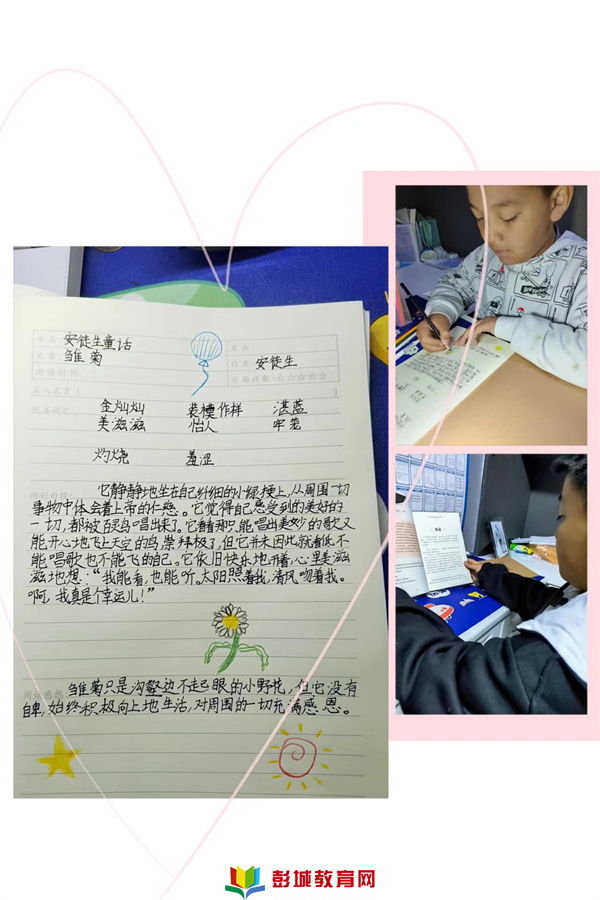 书名 安徒生童话
来源：
文章 雏菊
作者 安徒生
阅读时间：
评价指数：☆☆☆☆☆
名人名言（ ）
优美词汇：
金灿灿 装模作样 湛蓝
美滋滋 怡人 牢笼
灼烧 羞涩
精彩句段：
它静静地坐在自己纤细的小绿梗上，从周围一切
事物中体会着上帝的仁慈。它觉得自己感受到的美好的
一切，都被百灵鸟唱出来了。它看着那只能唱出美妙的歌又
能开心地飞上天空的鸟崇拜极了，但它并未因此就看低不
能唱歌也不能飞的自己。它依旧快乐地开着，心里美滋
滋地想：“我能看，也能听，太阳照着我，清风吻着我。
啊，我真是个幸运儿！”
阅读感想：
雏菊只是沟壑边不起眼的小野花，但它没有
自卑，始终积极向上地生活，对周围的一切充满感恩。
彭城教育网